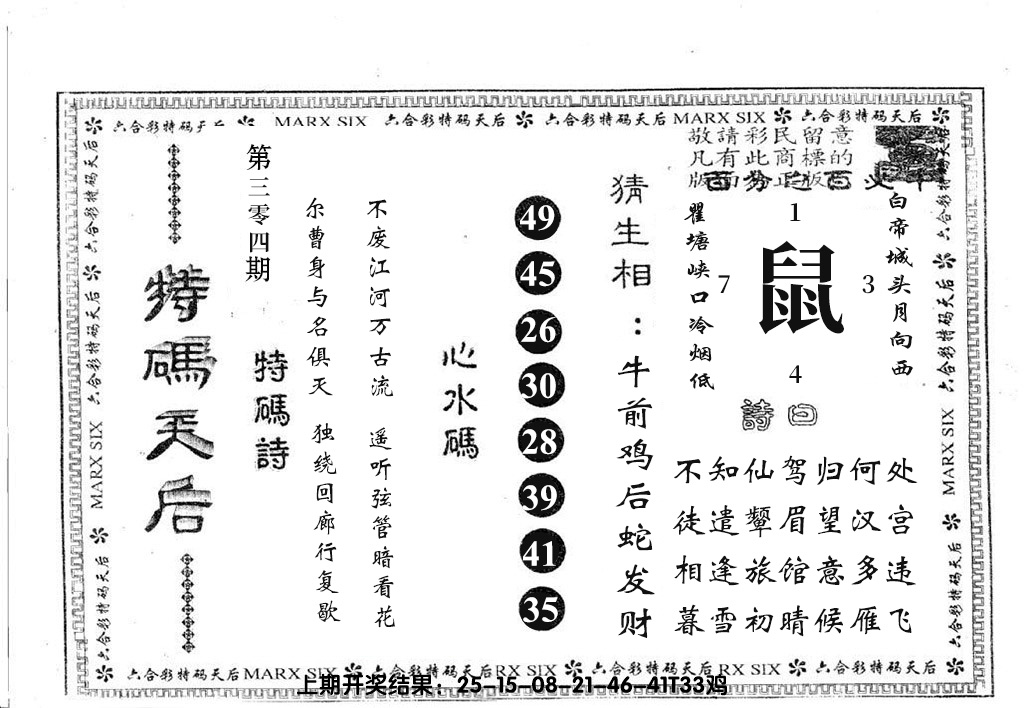 六合彩特码天后 MARX SIX 六合彩特码天后 六合彩特码天后 MARX SIX 六合彩特码天后
敬請彩民留意
凡有此商標的
白帝城头月向西
瞿塘峡口冷烟低
1
7
鼠
3
4
詩曰
不知仙驾归何处
徒遣颦眉望汉宫
相逢旅馆意多违
暮雪初晴候雁飞
猜生相：牛前鸡后蛇发财
49
45
26
30
28
39
41
35
心水碼
不废江河万古流 遥听弦管暗看花
尔曹身与名俱灭 独绕回廊行复歇
第三零四期
特碼詩
特碼天后
六合彩特码天后 MARX SIX 六合彩特码天后
六合彩特码天后 MARX SIX 六合彩特码天后
六合彩特码天后 MARX SIX 六合彩特码天后 RX SIX 六合彩特码天后 RX SIX 六合彩特码天后
上期开奖结果：25-15-08-21-46-41T33鸡